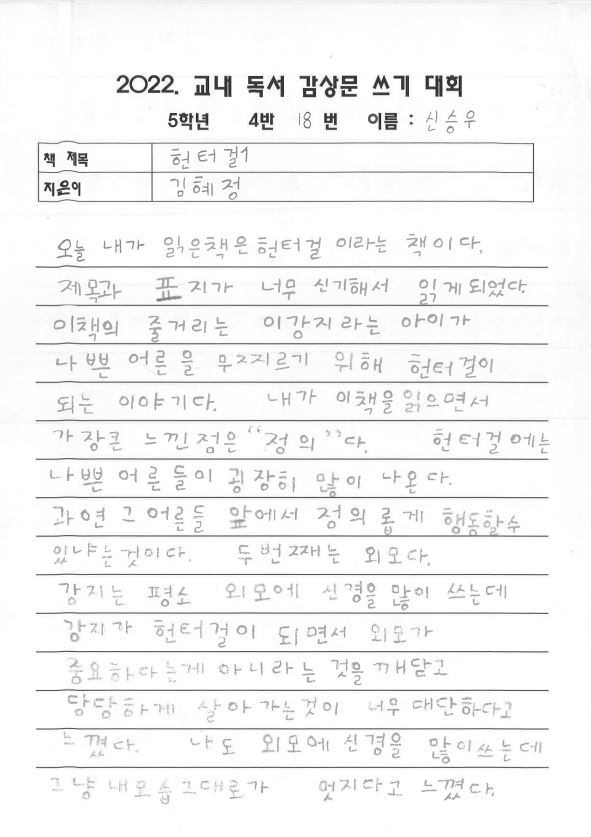 2022. 교내 독서 감상문 쓰기 대회
5학년 4반 18번 이름 : 신승우
책 제목 헌터걸1
지은이 김혜정
오늘 내가 읽은책은헌터걸 이라는 책이다.
제목과 표지가 너무 신기해서 읽게되었다.
이책의 줄거리는 이강지라는 아이가
나쁜 어른을 무찌르기 위해 헌터걸이
되는 이야기다. 내가 이책을읽으면서
가장큰 느낀점은 "정의"다. 헌터걸에는
나쁜어른들이 굉장히 많이 나온다.
과연그어른들 앞에서 정의롭게 행동할수
있냐는것이다. 두번째는 외모다.
강지는 평소 외모에 신경을 많이 쓰는데
강지가 헌터걸이 되면서 외모가
중요하다는게 아니라는 것을깨닫고
당당하게 살아가는것이 너무대단하다고
느꼈다. 나도 외모에신경을 많이쓰는데
그냥내모습그대로가 멋지다고 느꼈다.